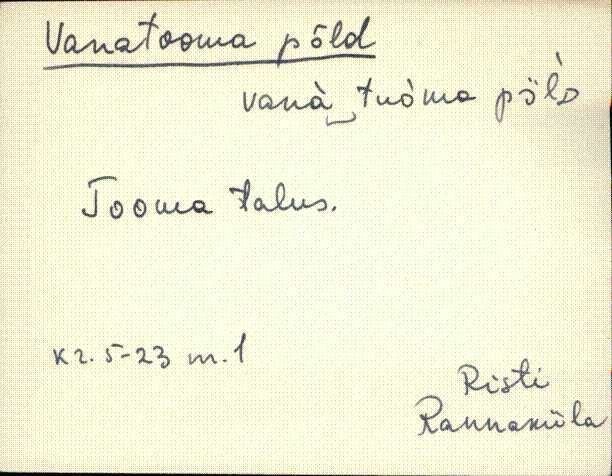 Vanatooma põld
vanà tuòma põ̀lD
Tooma talus.
KR. 5-23 m.1
Risti
Rannaküla